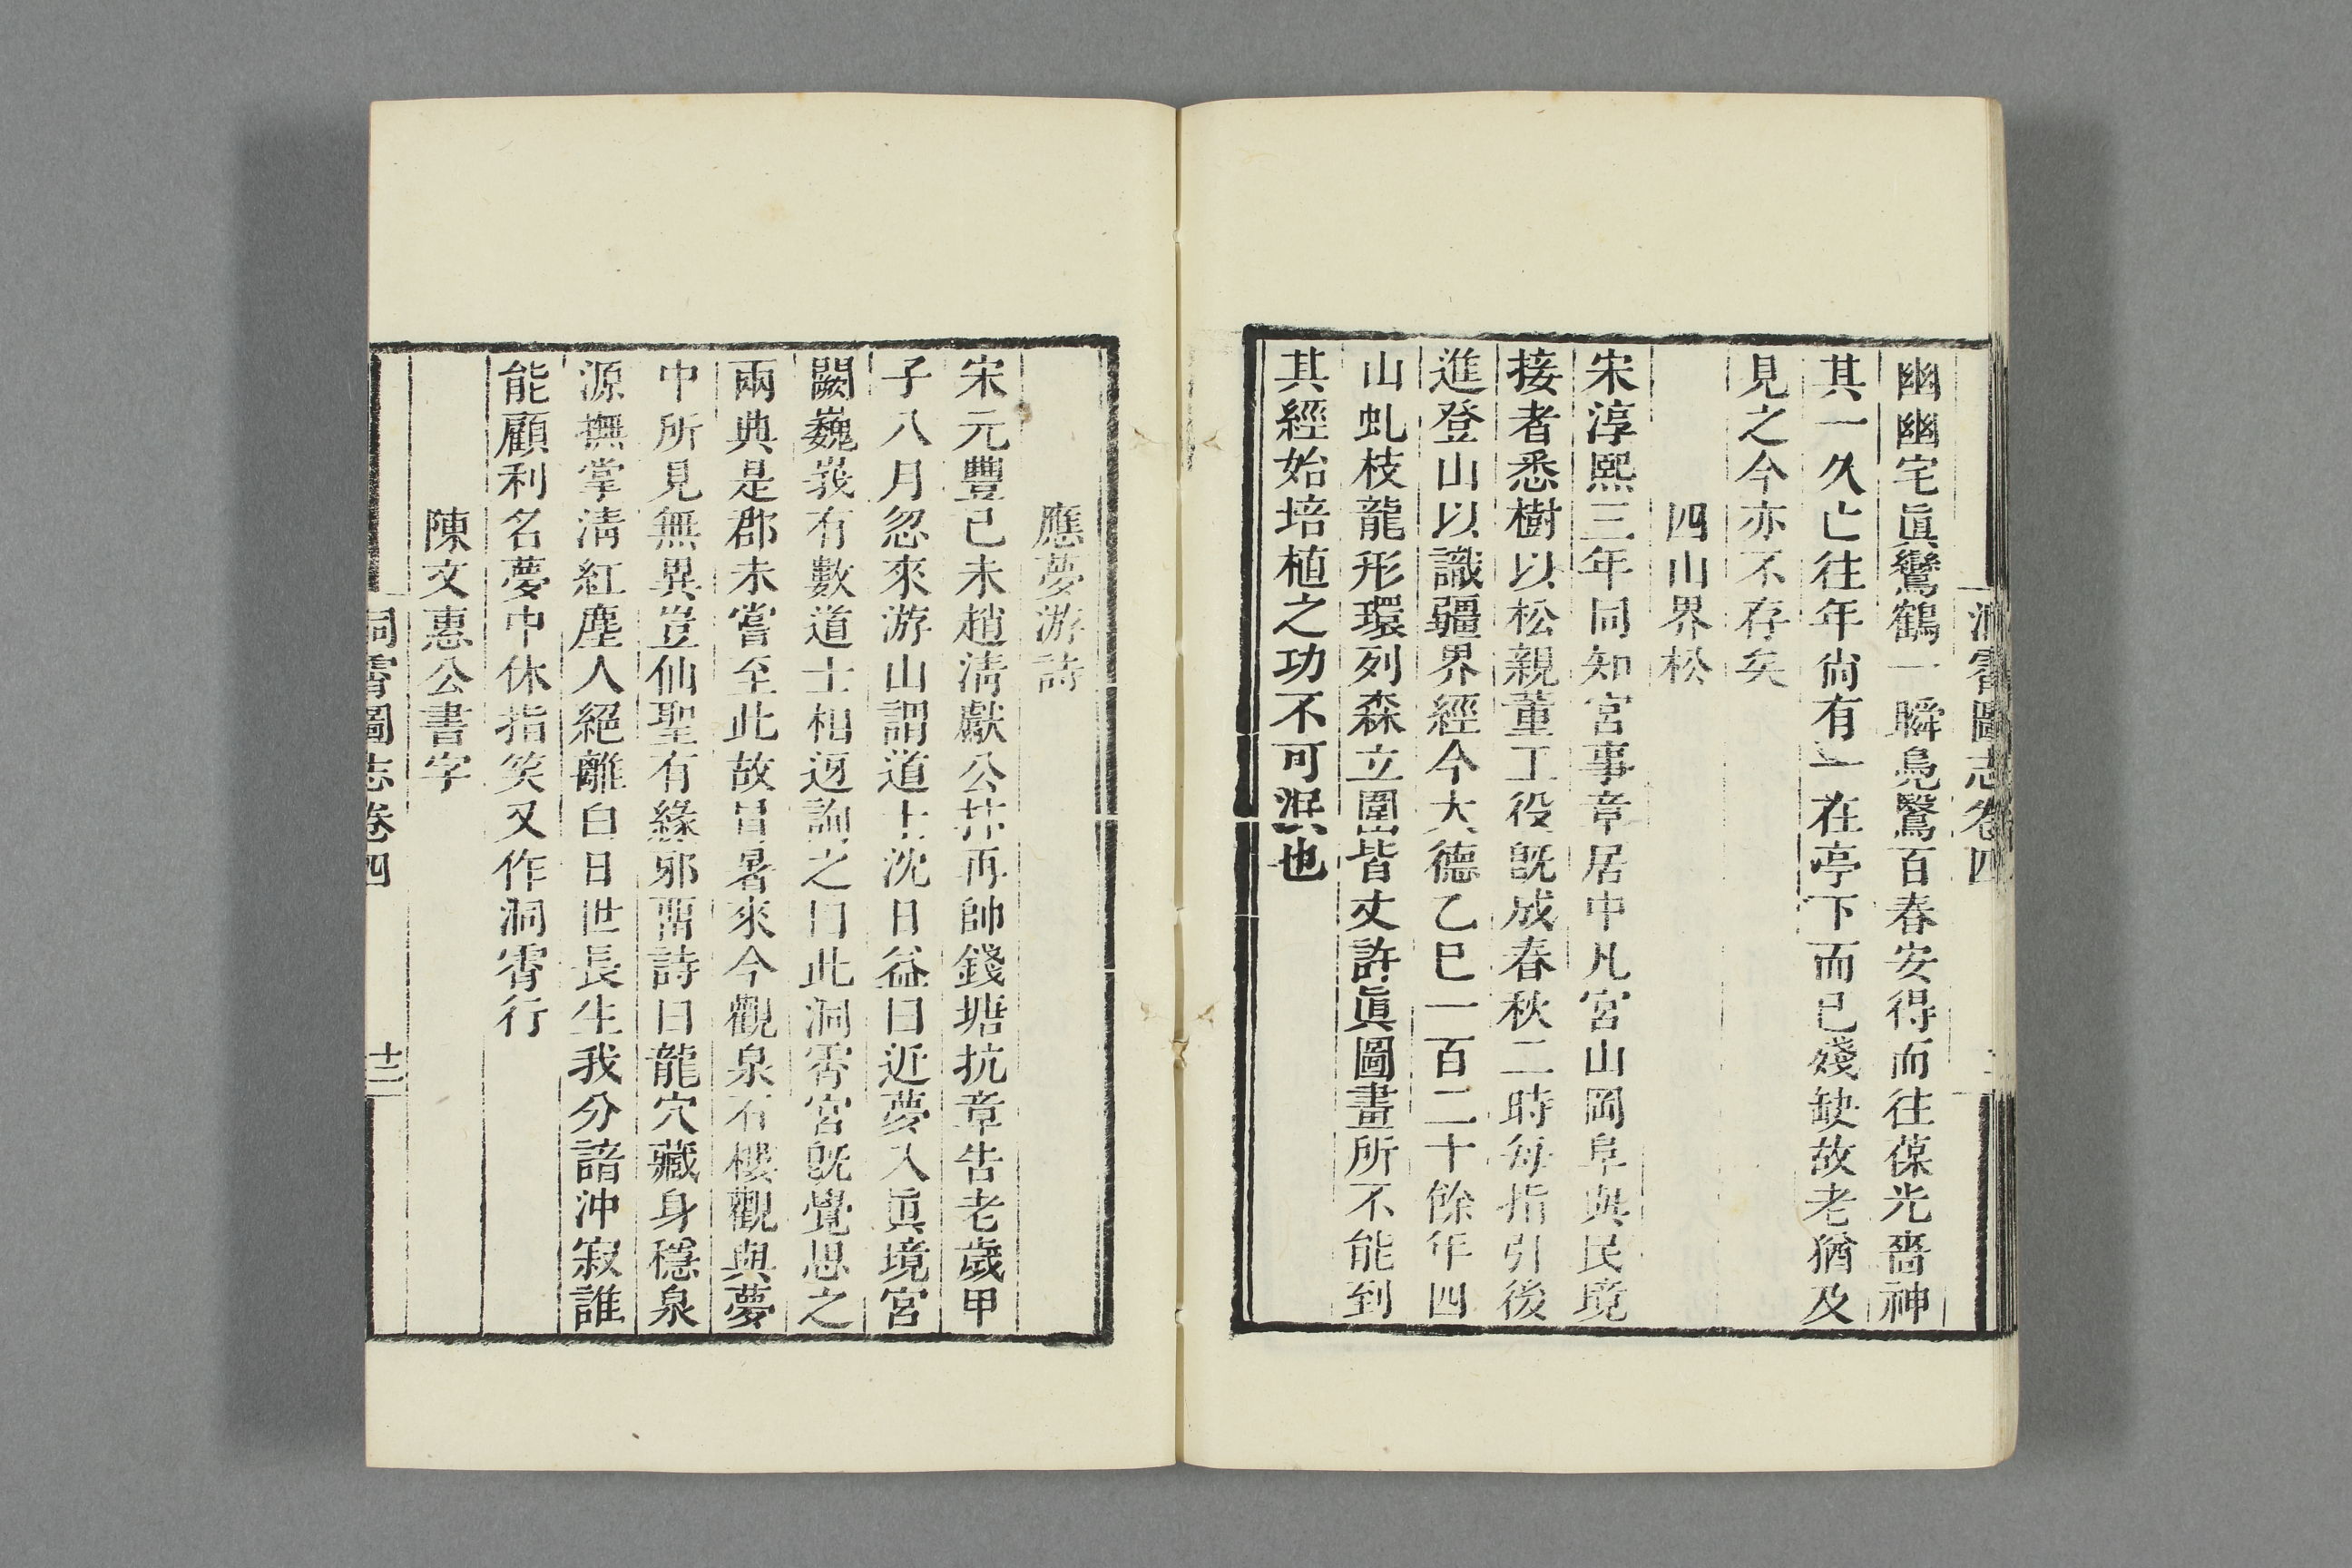 洞霄圖志卷四
幽幽宅眞鸞鶴一瞬鳧鷖百春安得而往葆光嗇神
其一久亡往年尙有一在亭下而已殘缺故老猶及
見之今亦不存矣
四山界松
宋淳熙三年同知宮事章居中凡宮山岡阜與民境
接者悉樹以松親董工役旣成春秋二時每指引後
進登山以識疆界經今大德乙巳一百二十餘年四
山虬枝龍形環列森立圍皆丈許眞圖畫所不能到
其經始培植之功不可泯也
應夢游詩
宋元豐己未趙淸獻公抃再帥錢塘抗章告老歲甲
子八月忽來游山謂道士沈日益曰近夢入眞境宮
闕巍峩有數道士相迓詢之曰此洞霄宮旣覺思之
兩典是郡未嘗至此故冒暑來今觀泉石樓觀與夢
中所見無異豈仙聖有緣邪畱詩曰龍穴藏身穩泉
源撫掌淸紅塵人絕離白日世長生我分諳沖寂誰
能顧利名夢中休指笑又作洞霄行
陳文惠公書字
洞霄圖志卷四
十二